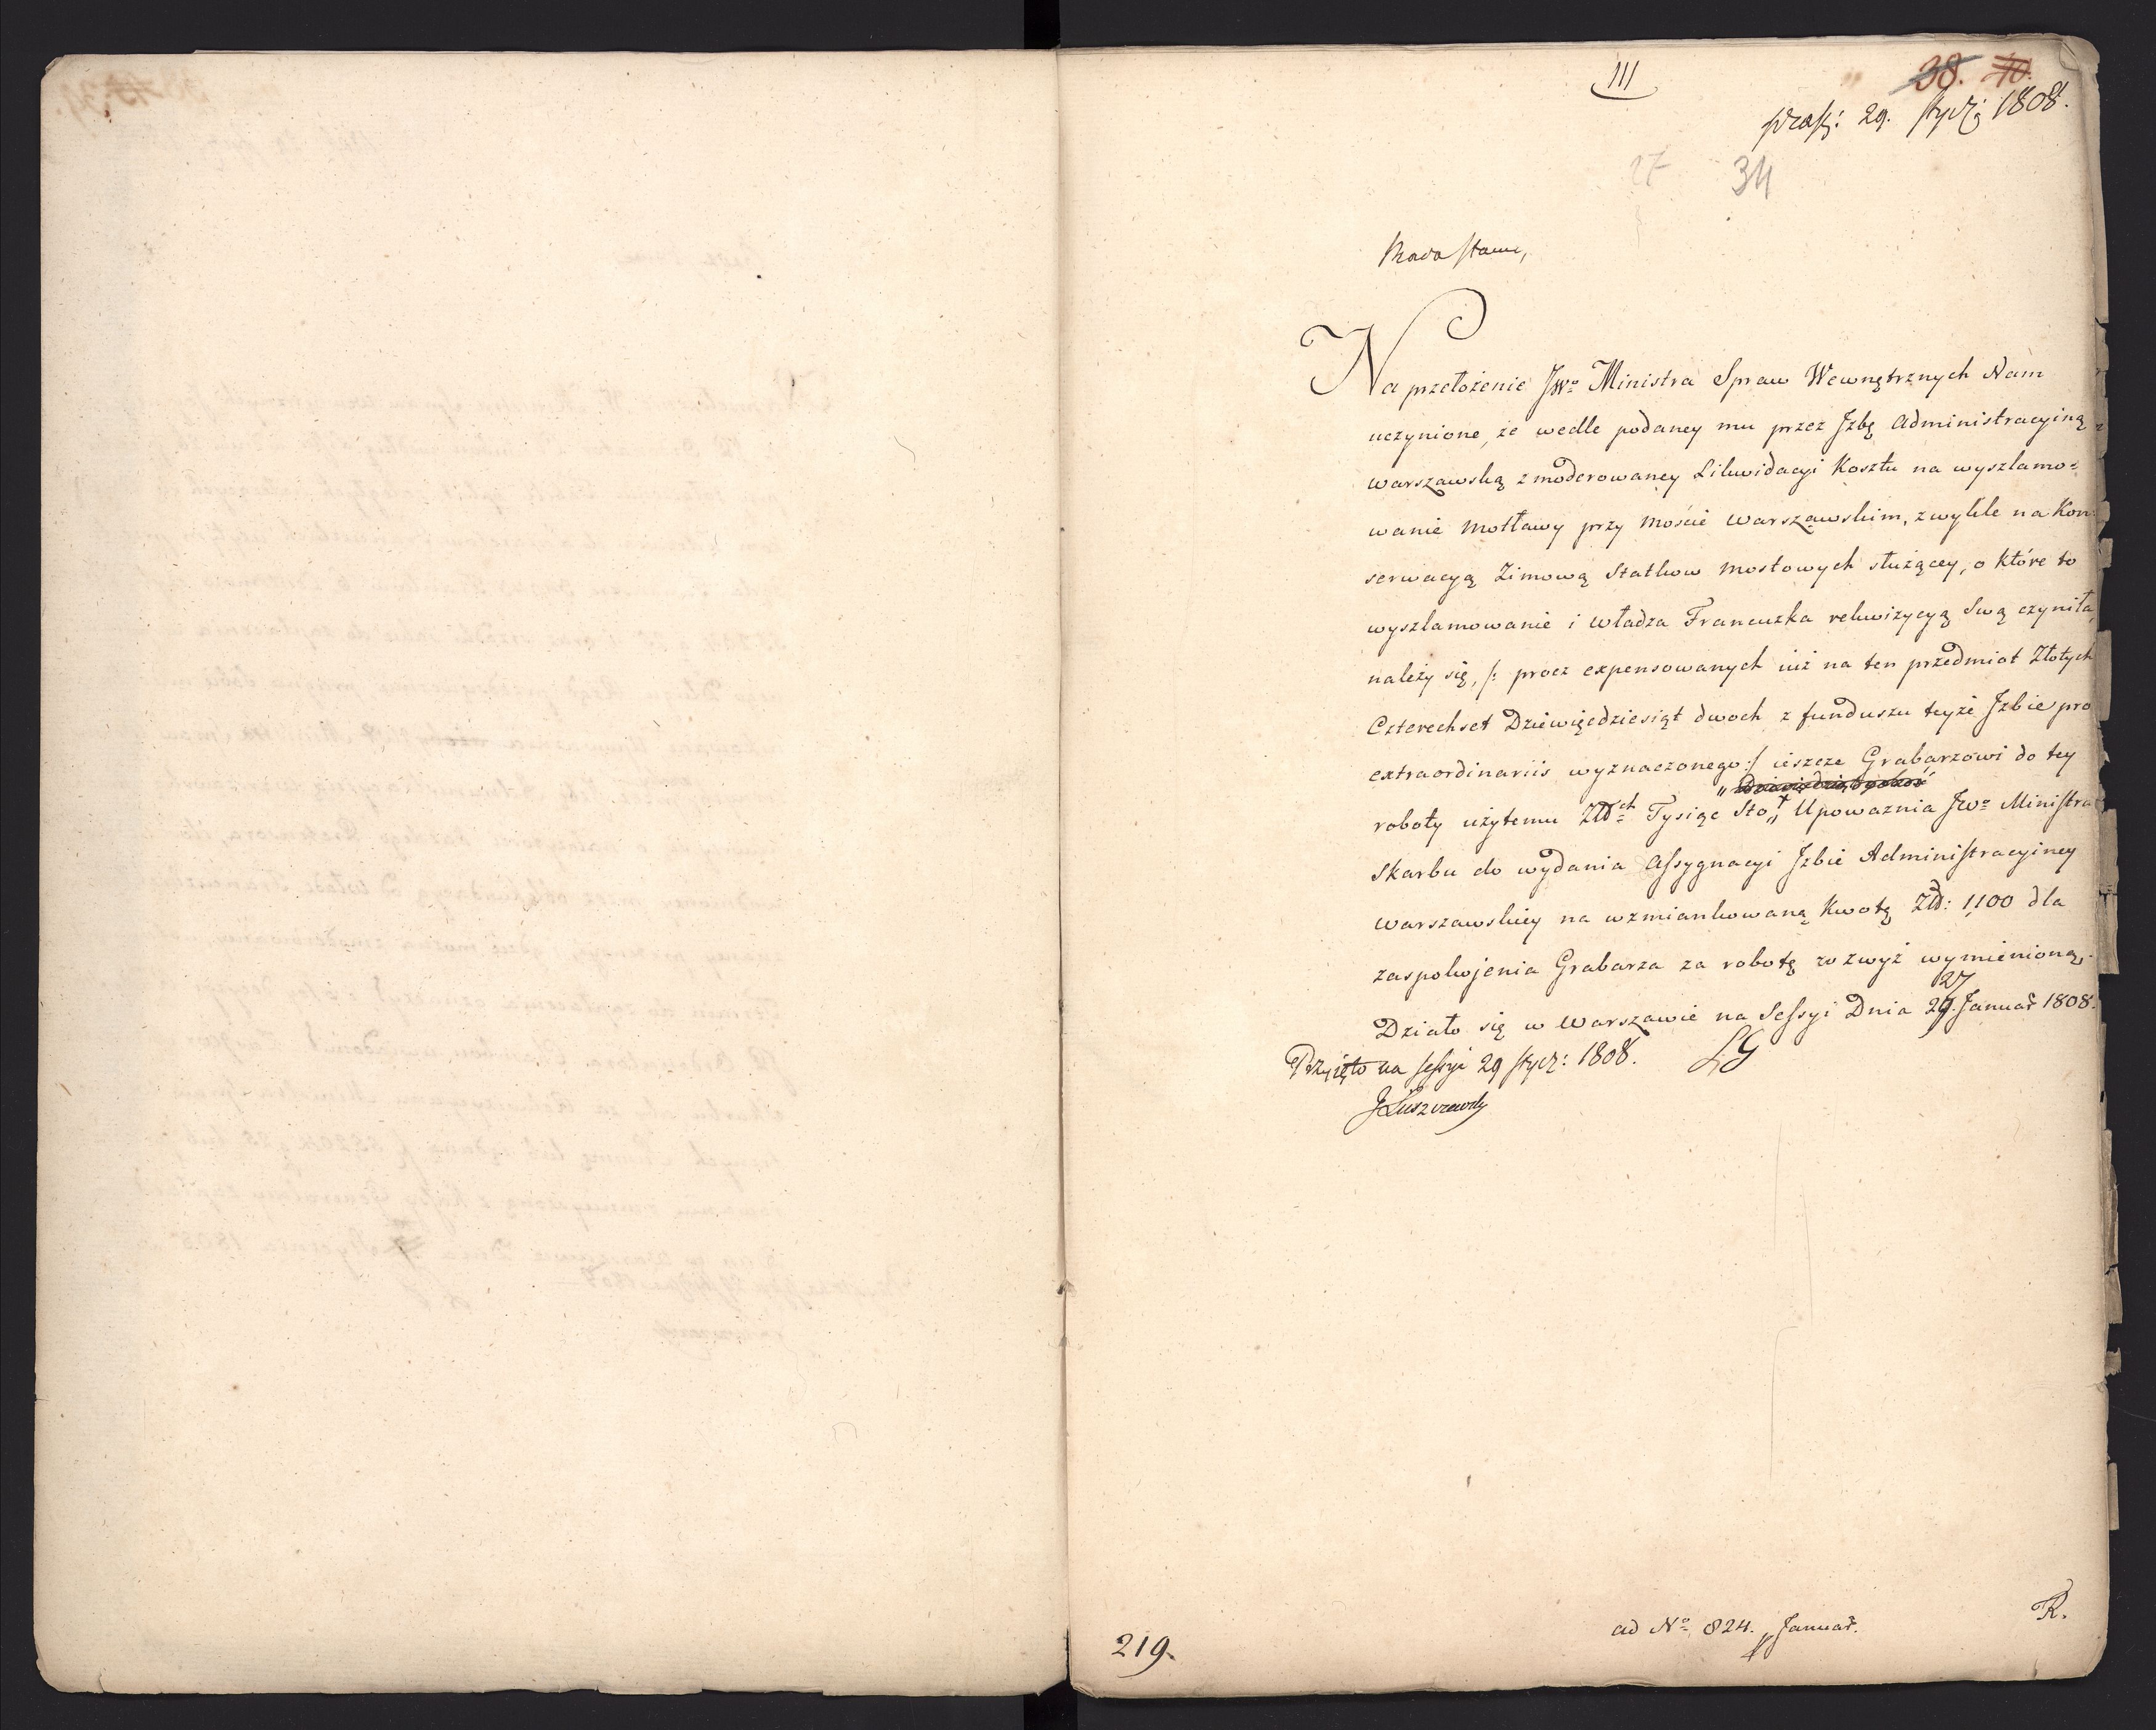 III
38. 40.
praes: 29. stycz: 1808.
27 34
Rada Stanu,
Na przełożenie JWo Ministra Spraw Wewnętrznych Nam
uczynione, że wedle podaney mu przez Jzbę Administracyiną
Warszawską zmoderowaney Likwidacyi Kosztu na wyszlamo=
wanie Mottawy przy Moście Warszawskim, zwykle na Kon=
serwacyą Zimową Statkow Mostowych służącey, o które to
wyszlamowanie i Władza Francuzka rekwizycyą Swą czyniła,
należy się, /: procz expensowanych iuż na ten przedmiot Złotych
Czterechset Dziewięcdziesiąt dwoch z funduszu teyże Jzbie pro
extraordinariis wyznaczonego :/ ieszcze Grabarzowi do tey
roboty użytemu Złłch Tysiąc Sto „ Upoważnia JWo Ministra
Skarbu do wydania Assygnacyi Jzbie Administracyiney
Warszawskiey na wzmiankowaną Kwotę Złł: 1,100 dla
zaspokojenia Grabarza za robotę rozwyż wymienioną.
27
Działo się w Warszawie na Sessyi Dnia 29. Januar 1808.
Przyięto na sessyi 29 stycz: 1808. LG
JŁuszczewsky
ad No 824. p Januar.
R.
219.